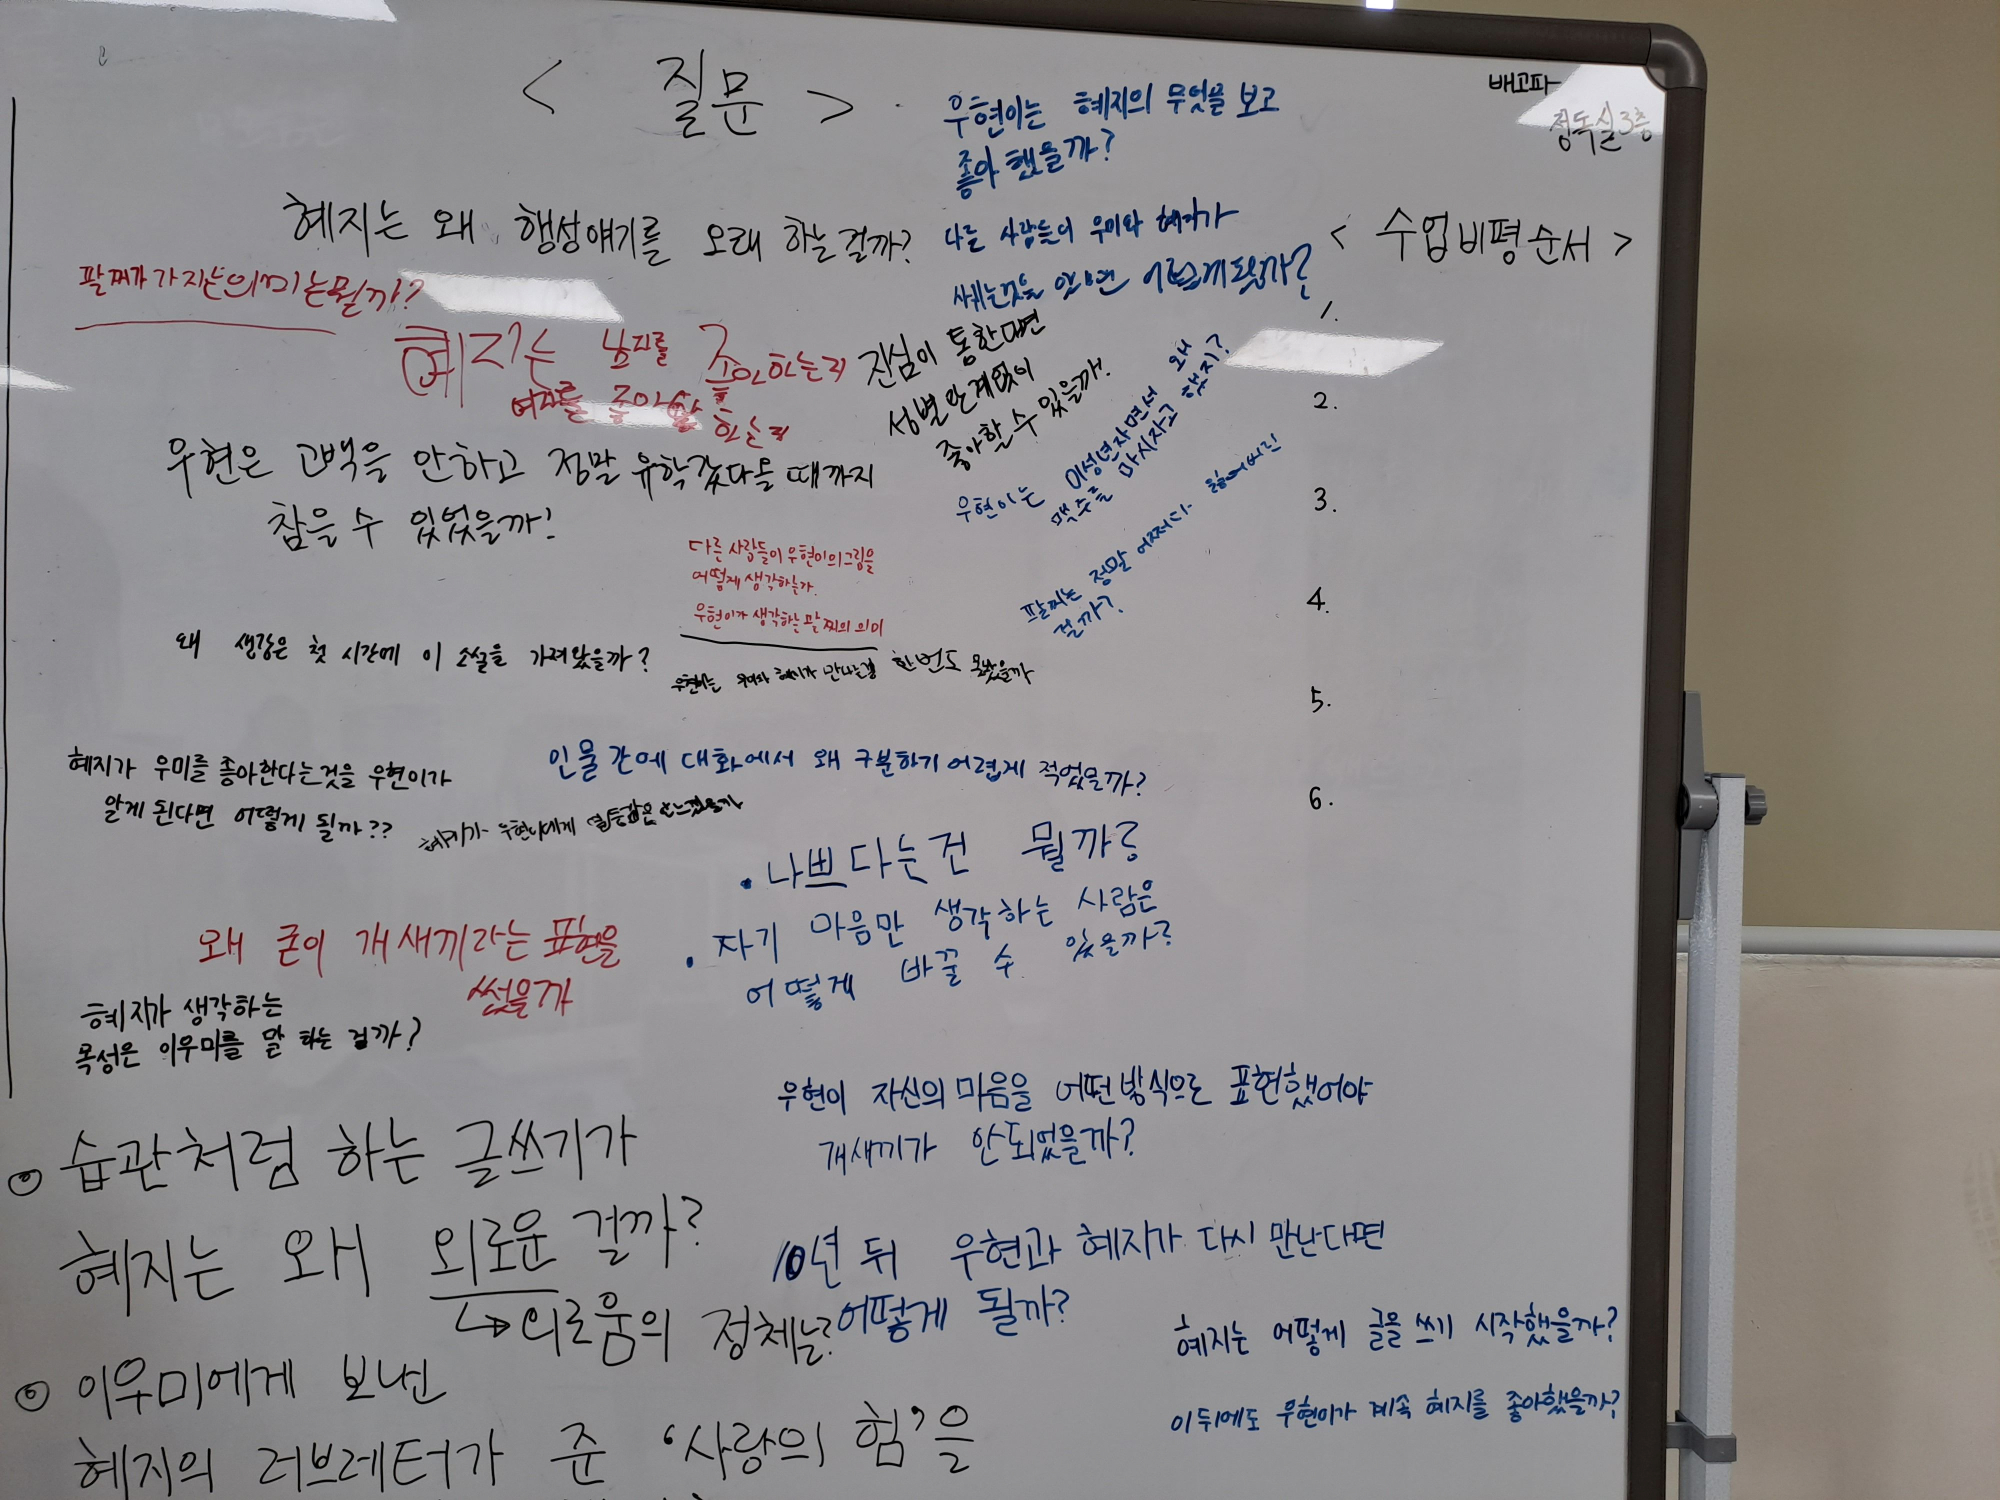 < 질문 >
배고파
정독실3층
우현이는 혜지의 무엇을 보고
좋아 했을까?
혜지는 왜 행성얘기를 오래 하는걸까?
사람들이 우미와 혜지가
사귀는것을 알면 어떻게될까?
< 수업비평순서 >
1.
2.
3.
4.
5.
6.
팔찌가 가지는의미는뭘까?
혜지는 남자를 좋아하는지
여자를 좋아 하는지
진심이 통한다면
성별 관계없이
좋아할 수 있을까?
우현이는 미성년자면서 왜
맥주를 마시자고 했지?
우현은 고백을 안하고 정말 유학갔다올 때까지
참을 수 있었을까?
팔찌는 정말 어쩌다 잃어버린
걸까?
다른 사람들이 우현이의그림을
어떻게 생각하는가
우현이가 생각하는팔찌의 의미
왜 생강은 첫 시간에 이 소설을 가져왔을까?
우현이는 우미와 혜지가 만나는걸 한번도 못봤을까
혜지가 우미를 좋아한다는것을 우현이가
알게 된다면 어떻게 될까??
인물간에 대화에서 왜 구분하기어렵게 적었을까?
혜지가 우현이에게 열등감은 안느꼈을까
• 나쁘다는건 뭘까?
• 자기 마음만 생각하는 사람은
어떻게 바꿀 수 있을까?
왜 굳이 개새끼라는 표현을
썼을까
혜지가 생각하는
목성은 이우미를 말 하는 걸까?
우현이 자신의 마음을 어떤방식으로 표현했어야
개새끼가 안되었을까?
습관처럼 하는 글쓰기가
혜지는 왜 외로운 걸까?
↳ 외로움의 정체는?
10년 뒤 우현과 혜지가 다시 만난다면
어떻게 될까?
혜지는 어떻게 글을 쓰기 시작했을까?
이 뒤에도 우현이가 계속 혜지를 좋아했을까?
이우미에게 보낸
혜지의 러브레터가 준 '사랑의 힘'을